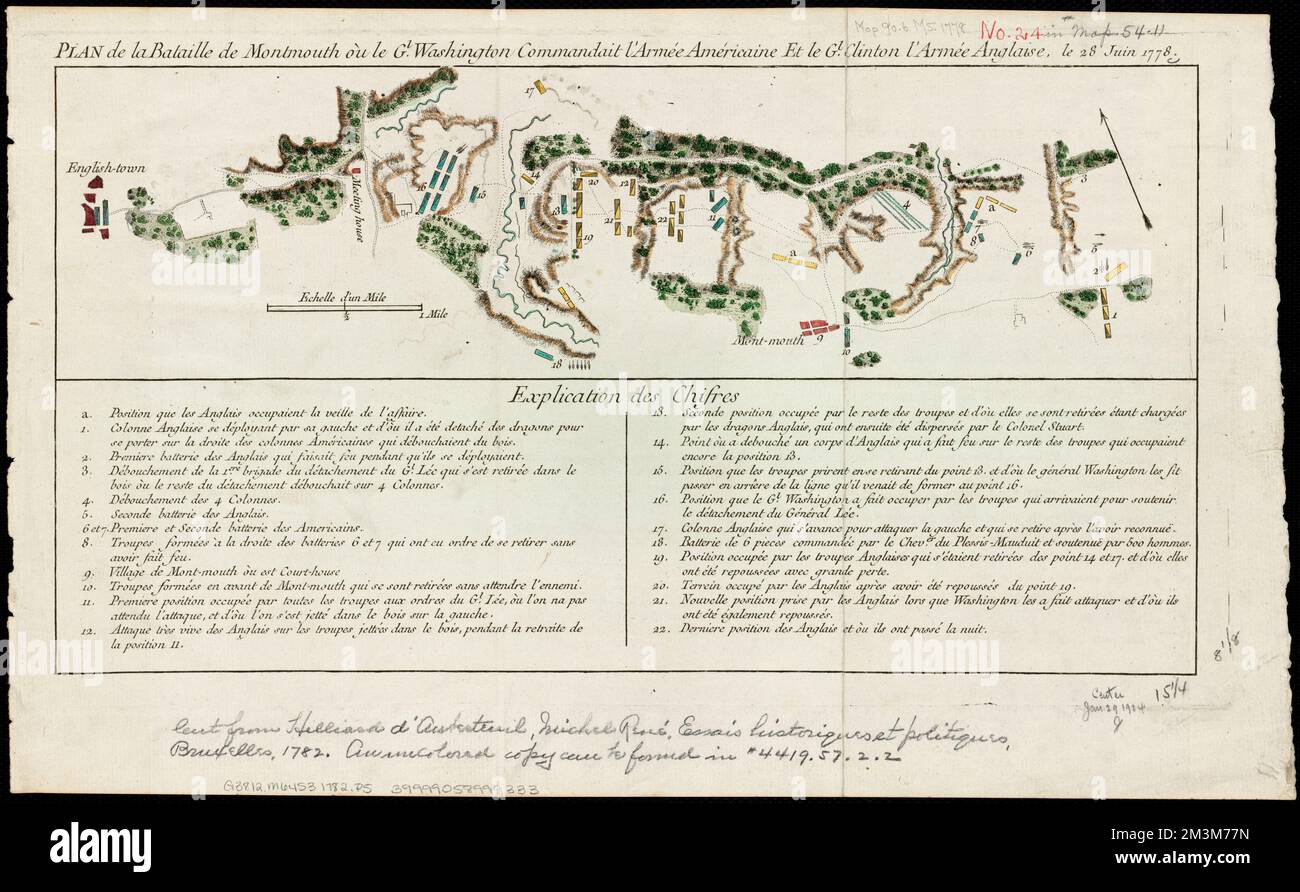 Map 90.6 M5.1778
No. 24 in Map 54.11
PLAN de la Bataille de Montmouth où le Gl. Washington Commandait l'Armée Américaine Et le Gl. Clinton l'Armée Anglaise, le 28 Juin 1778.
English-town
Meeting house
16
15
17
14
13
20
19
21
12
22
11
a
4
a
7
8
6
3
5
2
1
Echelle d'un Mile
½
1 Mile
18
Mont-mouth
9
10
Explication des Chifres
a. Position que les Anglais occupaient la veille de l'affaire.
1. Colonne Anglaise se déployant par sa gauche et d'où il a été detaché des dragons pour
se porter sur la droite des colonnes Américaines qui débouchaient du bois.
2. Premiere batterie des Anglais qui faisait feu pendant qu'ils se déployaient.
3. Débouchement de la 1ere brigade du détachement du Gl. Lée qui s'est retirée dans le
bois où le reste du détachement débouchait sur 4 Colonnes.
4. Débouchement des 4 Colonnes.
5. Seconde batterie des Anglais.
6 et 7. Premiere et Seconde batterie des Americains.
8. Troupes formées à la droite des batteries 6 et 7 qui ont eu ordre de se retirer sans
avoir fait feu.
9. Village de Mont-mouth où est Court-house
10. Troupes formées en avant de Mont-mouth qui se sont retirées sans attendre l'ennemi.
11. Premiere position occupée par toutes les troupes aux ordres du Gl. Lée, où l'on na pas
attendu l'attaque, et d'où l'on s'est jetté dans le bois sur la gauche.
12. Attaque très vive des Anglais sur les troupes jettées dans le bois, pendant la retraite de
la position 11.
13. Seconde position occupée par le reste des troupes et d'où elles se sont retirées étant chargées
par les dragons Anglais, qui ont ensuite été dispersés par le Colonel Stuart.
14. Point où a debouché un corps d'Anglais qui a fait feu sur le reste des troupes qui occupaient
encore la position 13.
15. Position que les troupes prirent en se retirant du point 13. et d'où le général Washington les fit
passer en arrière de la ligne qu'il venait de former au point 16.
16. Position que le Gl. Washington a fait occuper par les troupes qui arrivaient pour soutenir
le détachement du Général Lée.
17. Colonne Anglaise qui s'avance pour attaquer la gauche et qui se retire après l'avoir reconnuë.
18. Batterie de 6 pieces commandée par le Chever. du Plessis-Mauduit et soutenuë par 600 hommes.
19. Position occupée par les troupes Anglaises qui s'étaient retirées des point 14 et 17. et d'où elles
ont été repoussées avec grande perte.
20. Terrein occupé par les Anglais après avoir été repoussés du point 19.
21. Nouvelle position prise par les Anglais lors que Washington les a fait attaquer et d'où ils
ont été également repoussés.
22. Derniere position des Anglais et où ils ont passé la nuit.
8 1/8
15 1/4
Jan. 29 1904
Cut from Hilliard d'Auberteuil, Michel René, Essais historiques et politiques,
Bruxelles, 1782. An uncolored copy can be found in #4419.57.2.2
G3812.M6453 1782.P5 39999058999333
alamy
Image ID: 2M3M77N
www.alamy.com